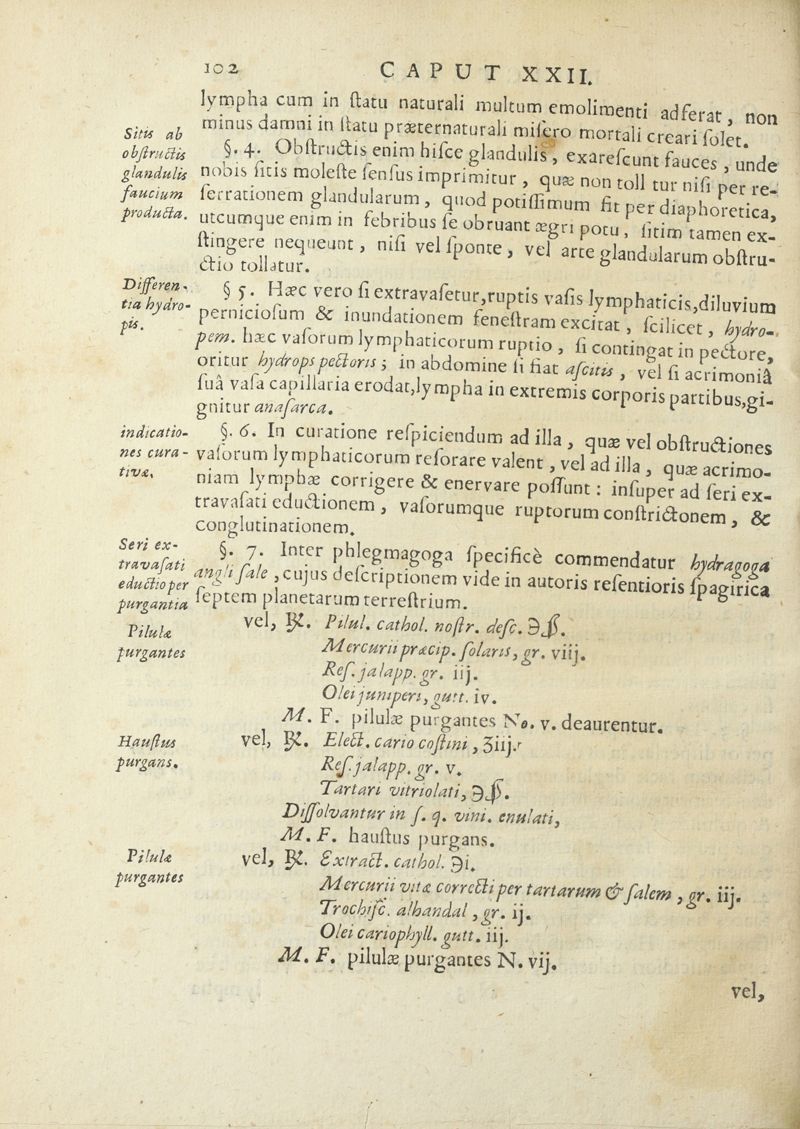 102 CAPUT XXII.
lympha cum in ſtatu naturali multum emolimenti adferat, non
minus damni in ſtatu præternaturali miſero mortali creari ſolet.
Situs ab obſtructis glandulis faucium producta.
§. 4. Obſtructis enim hiſce glandulis, exareſcunt fauces, unde
nobis ſitis moleſte ſenſus imprimitur, quæ non toll tur niſi per re-
ſerrationem glandularum, quod potiſſimum fit per diaphoretica,
utcumque enim in febribus ſe obruant ægri potu, ſitim tamen ex-
ſtingere nequeunt, niſi vel ſponte, vel arte glandularum obſtru-
ctio tollatur.
Differen-
tia hydro-
pis.
§ 5. Hæc vero ſi extravaſetur, ruptis vaſis lymphaticis, diluvium
pernicioſum & inundationem feneſtram excitat, ſcilicet, hydro-
pem. hæc vaſorum lymphaticorum ruptio, ſi contingat in pectore,
oritur hydrops pectoris; in abdomine ſi fiat aſcitus, vel ſi acrimoniâ
ſuâ vaſa capillaria erodat, lympha in extremis corporis partibus, gi-
gnitur anaſarca.
indicatio-
nes cura-
tivæ.
§. 6. In curatione reſpiciendum ad illa, quæ vel obſtructiones
vaſorum lymphaticorum reſorare valent, vel ad illa, quæ acrimo-
niam lymphæ corrigere & enervare poſſunt: inſuper ad ſeri ex-
travaſati eductionem, vaſorumque ruptorum conſtrictonem, &
conglutinationem.
Seri ex-
travaſati
eductio per
purgantia
§. 7. Inter phlegmagoga ſpecificè commendatur hydragoga
angli ſale, cujus deſcriptionem vide in autoris reſentioris ſpagirica
ſeptem planetarum terreſtrium.
Pilulæ
purgantes
vel, ℞. Pilul. cathol. noſtr. deſc. ℈ß.
Mercurii præcip. ſolaris, gr. viij.
Reſ. jalapp. gr. iij.
Olei juniperi, gutt. iv.
M. F. pilulæ purgantes No. v. deaurentur.
Hauſtus
purgans.
vel, ℞. Elect. cario coſtini, ʒiij.
Reſ. jalapp. gr. v.
Tartari vitriolati, ℈ß.
Diſſolvantur in ſ. q. vini. enulati,
M. F. hauſtus purgans.
Pilulæ
purgantes
vel, ℞. Extract. cathol. ℈i.
Mercurii vitæ correcti per tartarum & ſalem, gr. iij.
Trochiſc. alhandal, gr. ij.
Olei cariophyll. gutt. iij.
M. F. pilulæ purgantes N. vij.
vel,